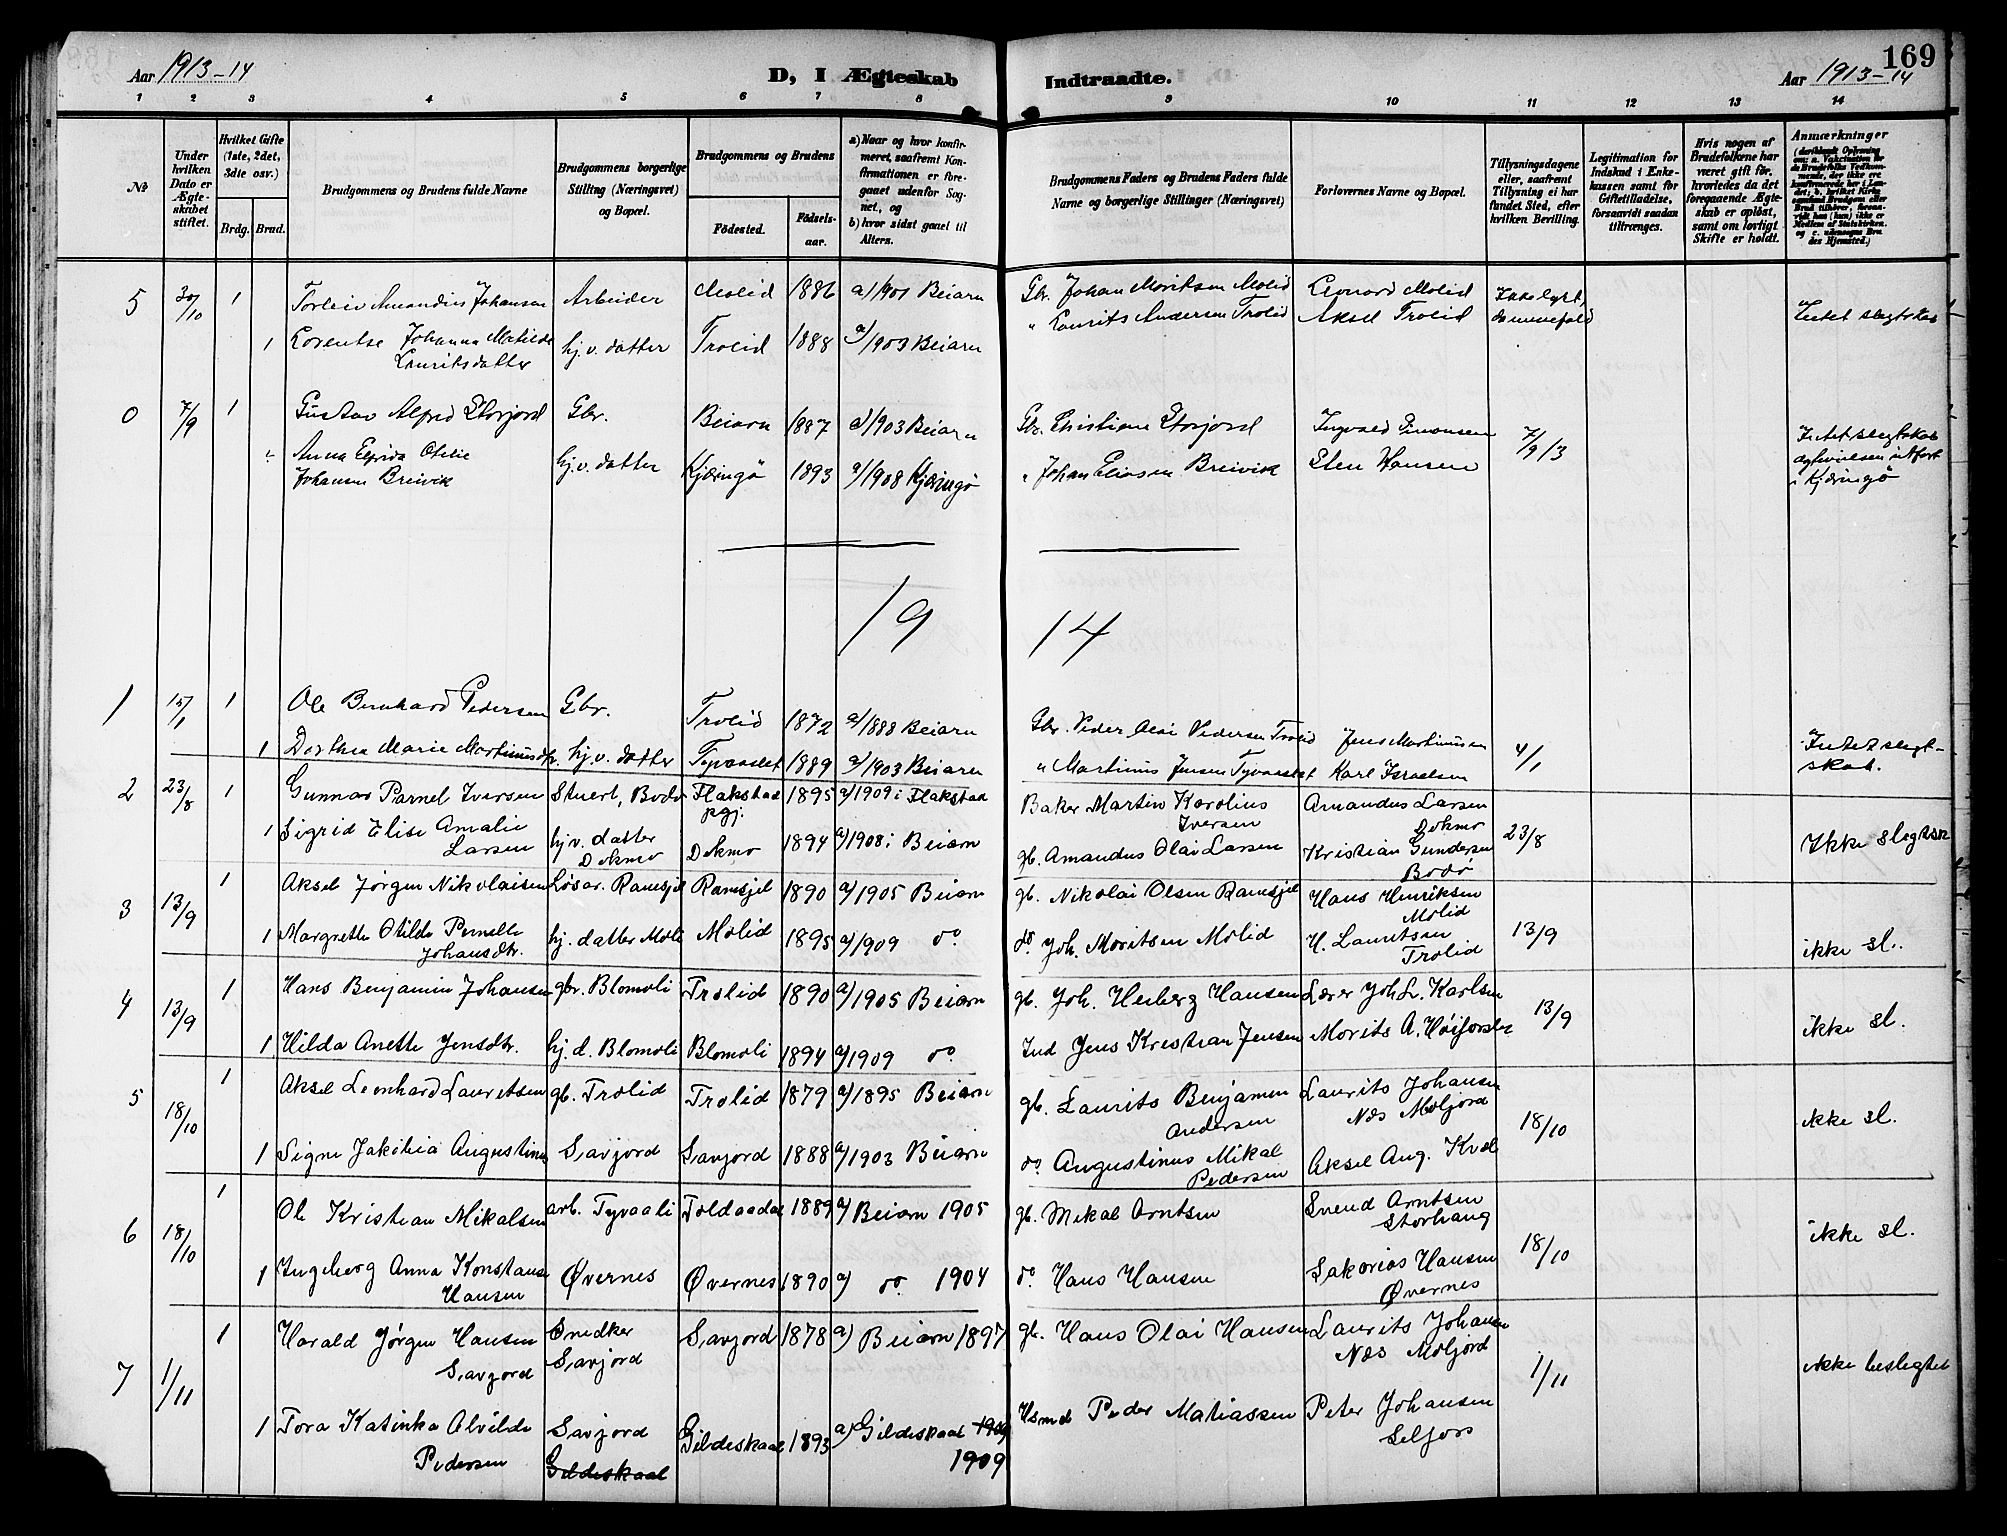 169
Aar 1913-14
D, I Ægteskab Indtraadte.
Aar 1913-14
1 2 3 4 5 6 7 8 9 10 11 12 13 14
№
Under hvilken Dato er Ægteskabet stiftet.
Hvilket Gifte (1ste, 2det, 3die osv.)
Brdg. Brud.
Brudgommens og Brudens fulde Navne
Brudgommens borgerlige Stilling (Næringsvei) og Bopæl.
Brudgommens og Brudens
Fødested.
Fødselsaar.
a) Naar og hvor konfirmeret, saafremt Konfirmationen er foregaaet udenfor Sognet, og
b) hvor sidst gaaet til Alters.
Brudgommens Faders og Brudens Faders fulde Navne og borgerlige Stillinger (Næringsvei)
Forlovernes Navne og Bopæl.
Tillysningsdagene eller, saafremt Tillysning ei har fundet Sted, efter hvilken Bevilling.
Legitimation for Indskud i Enkekassen samt for Giftetilladelse, forsaavidt saadan tiltrænges.
Hvis nogen af Brudefolkene har været gift før, hvorledes da det foregaaende Ægteskab er opløst, samt om lovligt Skifte er holdt.
Anmærkninger
5 30/10 1 Torleiv Amandius Johansen Arbeider Molid 1886 a/1901 Beiarn Gbr. Johan Moritsen Molid Leonard Molid Ikke lyst, Intet slegtskab
1 Lorentse Johanna Matilde Lauritsdatter hj.v. datter Trolid 1888 a/1903 Beiarn " Laurits Andersen Trolid Aksel Trolid
0 7/9 1 Gustav Alfred Storjord Gbr. Beiarn 1887 a/1903 Beiarn Gbr. Christian Storjord Ingvald Simonsen 7/9 13 Intet slegtskab
Anna Elfrida Otelie Johansen Breivik hj.v. datter Kjæringø 1893 a/1908 Kjæringø " Johan Eliasen Breivik Sten Hansen
i Kjæringø
19 14
1 15/1 1 Ole Bernhard Pedersen Gbr. Trolid 1872 a/1888 Beiarn Gbr. Peder Olai Pedersen Trolid Jens Martinusen 4/1 Intet slegtskab.
1 Dorthea Marie Martinusdtr. hj.v. datter Tyvaaslet 1889 a/1903 Beiarn " Martinus Jensen Tyvaaslet Karl Israelsen
2 23/8 1 Gunnar Parnel Iversen Stuert, Bodø Flakstad pgj. 1895 a/1909 i Flakstad Baker Martin Karolius Iversen Amandus Larsen Dokmo 23/8 Ikke slegtsk
1 Sigrid Elise Amalie Larsen hj v. datter Dokmo Dokmo 1894 a/1908 i Beiarn gb. Amandus Olai Larsen Kristian Gundersen Bodø
3 13/9 1 Aksel Jørgen Nikolaisen Løsar. Ramsjel Ramsjel 1890 a/1905 Beiarn gb. Nikolai Olsen Ramsjel Hans Henriksen Molid 13/9 ikke sl.
1 Margrethe Otilde Pernille Johansdtr. hj. datter Moli Molid 1895 a/1909 do. do. Joh. Moritsen Molid H. Lauritsen Trolid
4 13/9 1 Hans Benjamin Johansen gbr. Blomoli Trolid 1890 a/1905 Beiarn gb. Joh. Heiberg Hansen Lærer Joh L. Karlsen 13/9 ikke sl.
1 Hilda Anette Jensdtr. hj. d. Blomoli Blomoli 1894 a/1909 do. Ind Jens Kristian Jensen Morits A. Høiforslet
5 18/10 1 Aksel Leonhard Lauritsen gb. Trolid Trolid 1879 a/1895 Beiarn gb. Laurits Benjamin Andersen Laurits Johansen Næs Moljord 18/10 ikke sl.
1 Signe Jakobia Augustinus Savjord Savjord 1888 a/1903 Beiarn do. Augustinus Mikal Pedersen Aksel Aug. Kvæl
6 18/10 1 Ole Kristian Mikalsen arb. Tyvaali Toldaadal 1889 a/ Beiarn 1905 gb. Mikal Arntsen Svend Arntsen Storhaug 18/10 ikke sl.
1 Ingeborg Anna Konstanse Hansen Øvernes Øvernes 1890 a) do. 1904 do. Hans Hansen Sakarias Hansen Øvernes
7 1/11 1 Harald Jørgen Hansen Savjord Snedker Savjord Savjord 1878 a) Beiarn 1897 gb. Hans Olai Hansen Laurits Johansen Næs Moljord 1/11 ikke beslegtet
1 Tora Katinka Alvilde Pedersen Savjord Gildeskaal Gildeskaal 1893 a) Gildeskaal 1909 1909 Hsmd Peder Matiassen Peter Johansen Selfors